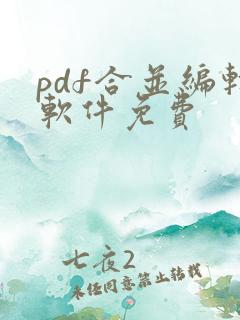 pdf合並編輯
軟件免費
七夜2
未任同意禁止转载